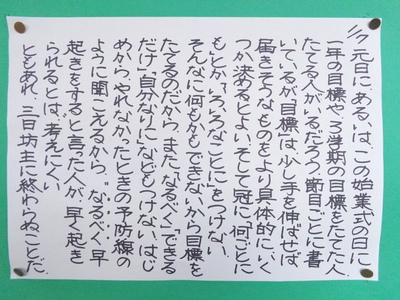 1/11 元日に、あるいは、この始業式の日に
一年の目標や、3学期の目標をたてた人、
たてる人がいるだろう。節目ごとに書
いているが「目標」は少し手を伸ばせば
届きそうなものをより具体的に、いく
つか決めるとよい。そして冠に、「何ごとに
も」とか「いろいろなことに」をつけない。
そんなに何もかもできないから目標を
たてるのだから。また、「なるべく」「できる
だけ」「自分なりに」などもつけない。はじ
めから、やれなかったときの予防線の
ように聞こえるから。“なるべく、早
起きをする”と言った人が、早く起き
られるとは、考えにくい。
ともあれ、三日坊主に終わらぬことだ。